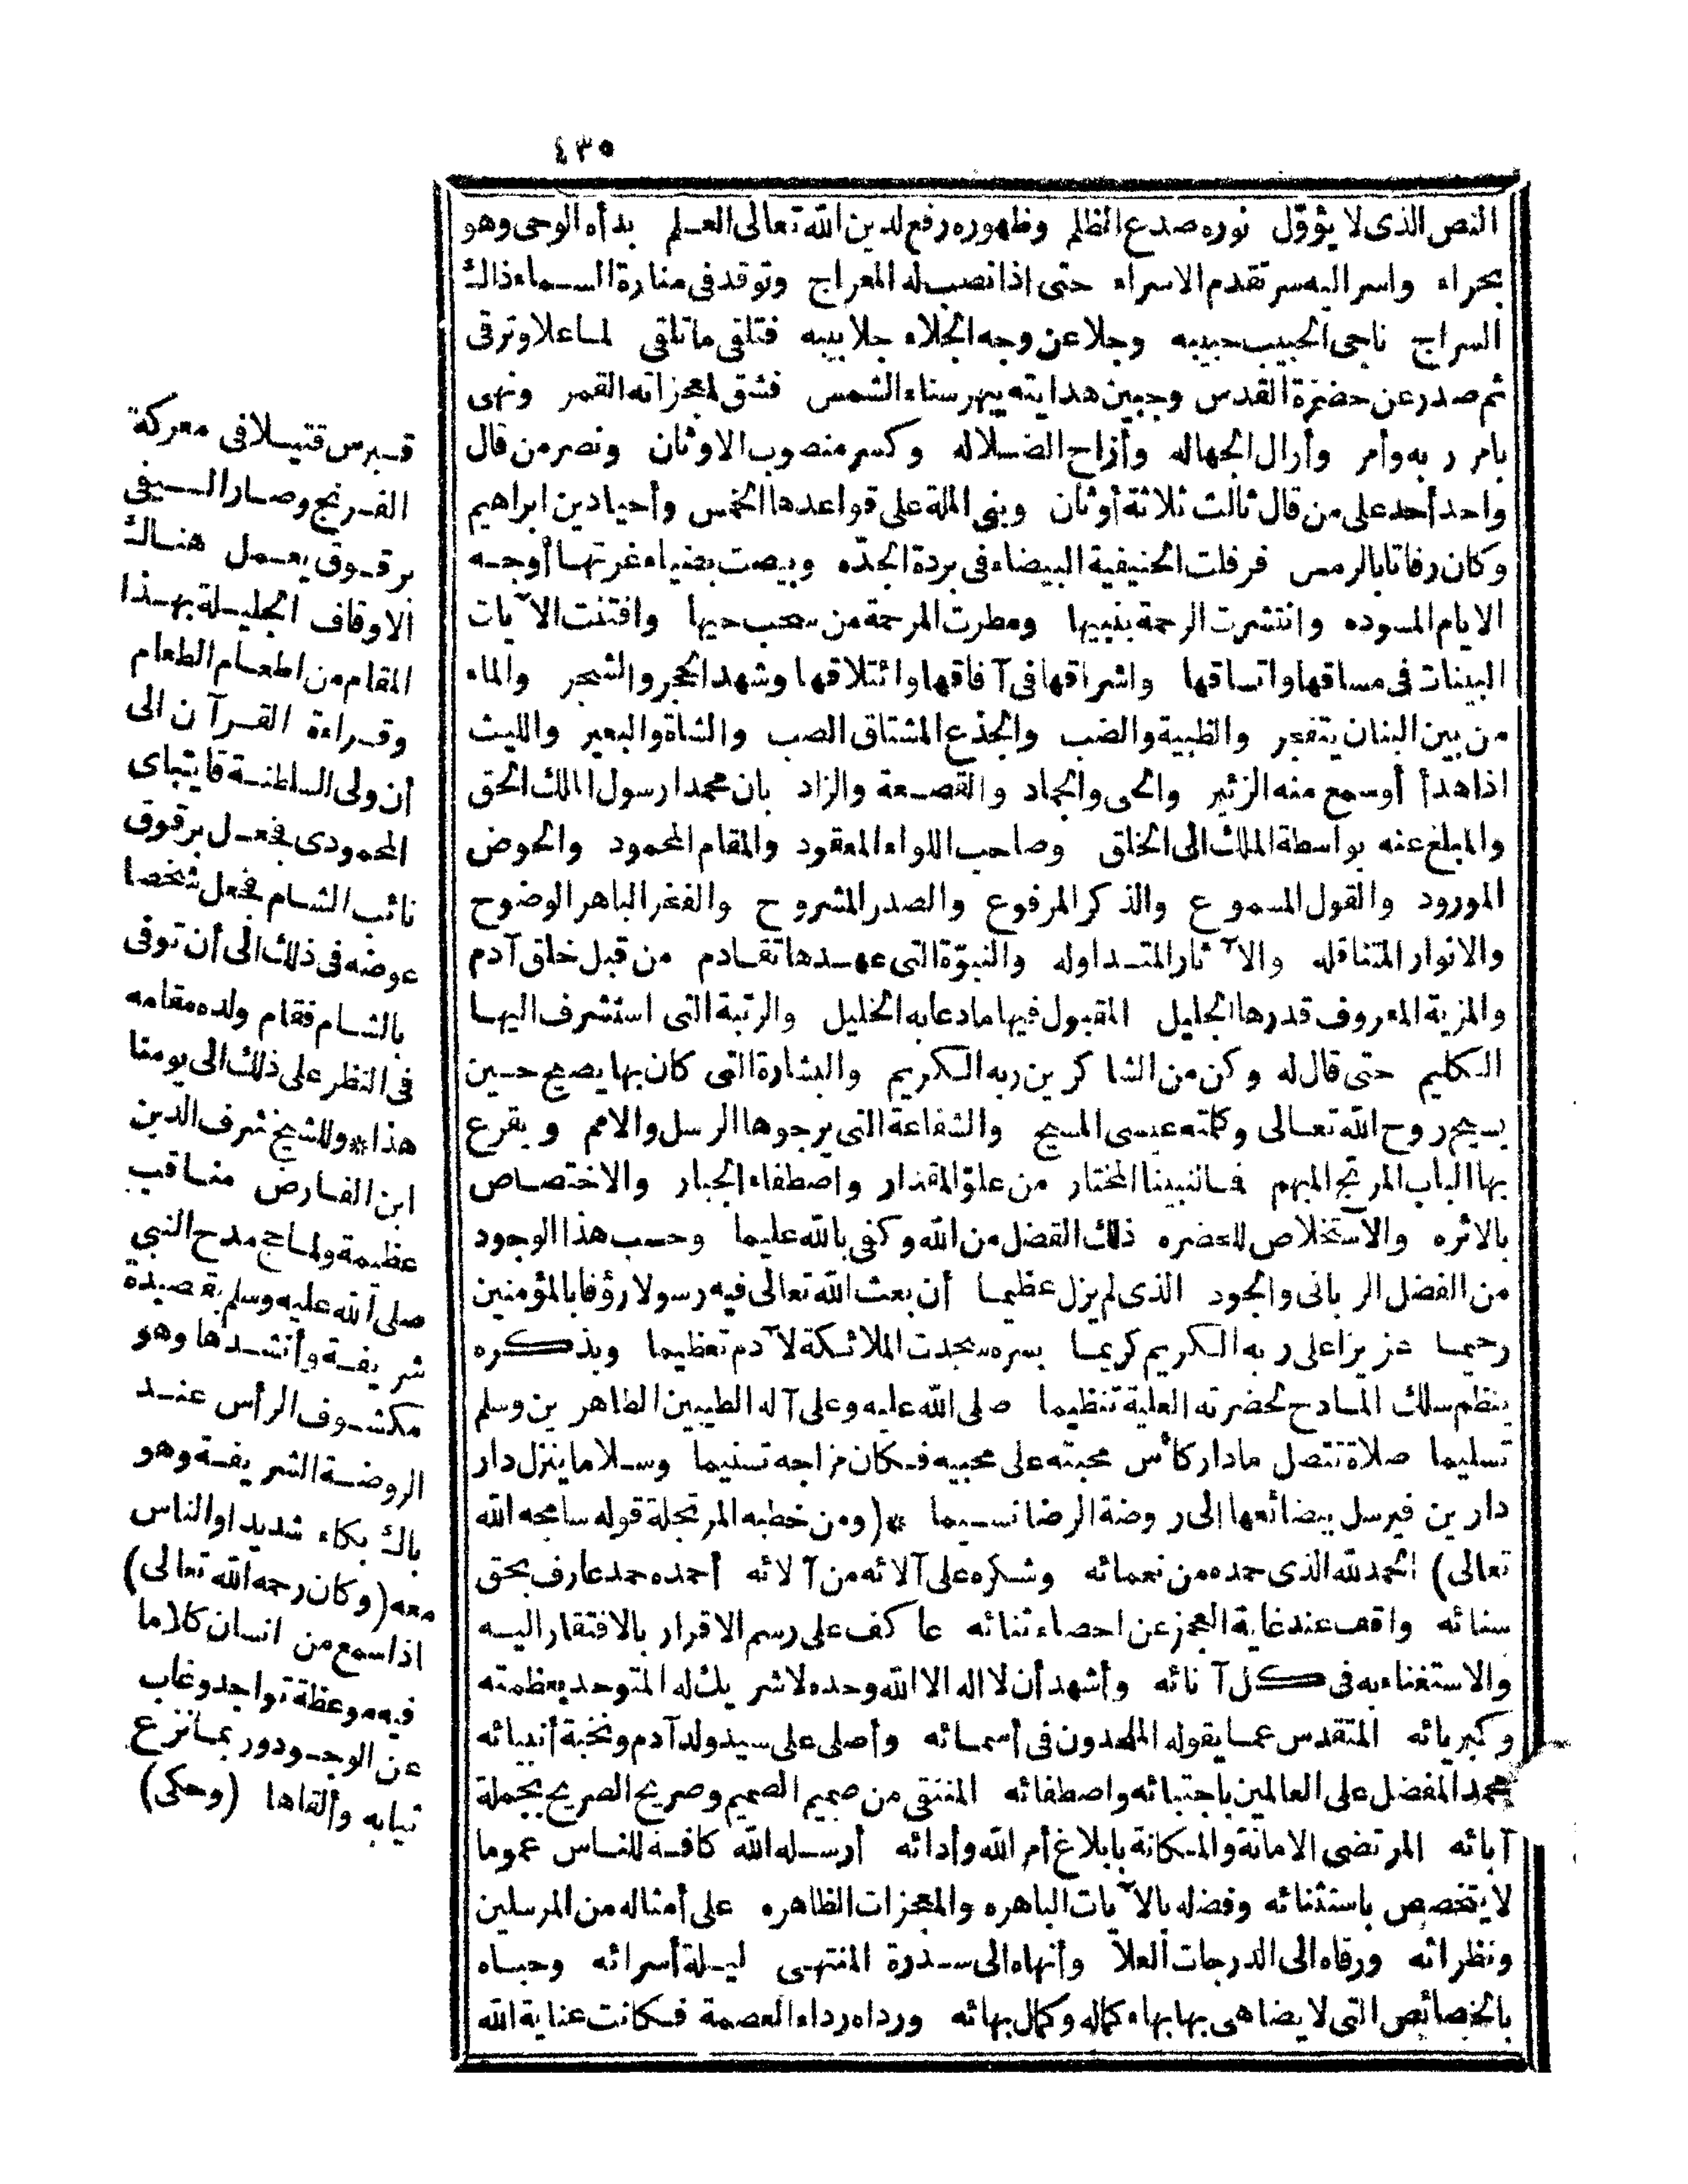 ٤٣٥
النص الذى لا يؤوّل نوره صدع الظلم وظهوره رفع لدين الله تعالى العلم بدأه الوحى وهو
بحراء واسر اليه سر تقدم الاسراء حتى اذا نصب له المعراج وتوقد فى منارة السماء ذاك
السراج ناجى الحبيب حبيبه وجلا عن وجه الجلاء جلابيبه فتلقى ما تلقى لما علا وترقى
ثم صدر عن حضرة القدس وجبين هدايته يبهر سناء الشمس فشق لمعجزاته القمر ونهى
بامر ربه وأمر وأزال الجهاله وأزاح الضلاله وكسر منصوب الاوثان ونصر من قال
واحد أحد على من قال ثالث ثلاثة أو ثان وبنى الملة على قواعدها الخمس وأحيا دين ابراهيم
وكان رفاتا بالرمس فرفلت الحنيفية البيضاء فى بردة الجدّه وبيضت بضياء غرتها أوجه
الايام المسوده وانتشرت الرحمة بنبيها ومطرت المرحمة من سحب حيها وافتنت الآيات
البينات فى مساقها واتساقها واشراقها فى آفاقها وائتلاقها وشهد الحجر والشجر والماء
من بين البنان يتفجر والظبية والضب والجذع المشتاق الصب والشاة والبعير والليث
اذا هدأ أو سمع منه الزئير والحى والجماد والقصعة والزاد بان محمدا رسول المالك الحق
والمبلغ عنه بواسطة الملك الى الخلق وصاحب اللواء المعقود والمقام المحمود والحوض
المورود والقول المسموع والذكر المرفوع والصدر المشروح والفخر الباهر الوضوح
والانوار المتناقله والآثار المتداوله والنبوّة التى عهدها تقادم من قبل خلق آدم
والمزية المعروف قدرها الجليل المقبول فيها ما دعا به الخليل والرتبة التى استشرف اليها
الكليم حتى قال له وكن من الشاكرين ربه الكريم والبشارة التى كان بها يصيح حين
يسيح روح الله تعالى وكلمته عيسى المسيح والشفاعة التى يرجوها الرسل والامم ويقرع
بها الباب المرتج المبهم فما لنبينا المختار من علوّ المقدار واصطفاء الجبار والاختصاص
بالاثره والاستخلاص للحضره ذلك الفضل من الله وكفى بالله عليما وحسب هذا الوجود
من الفضل الربانى والجود الذى لم يزل عظيما أن بعث الله تعالى فيه رسولا رؤفا بالمؤمنين
رحيما عزيزا على ربه الكريم كريما بسره سجدت الملائكة لآدم تعظيما وبذكره
ينظم سلك المادح لحضرته العلية تنظيما صلى الله عليه وعلى آله الطيبين الطاهرين وسلم
تسليما صلاة تتصل ما دار كأس محبته على محبيه فكان مزاجه تسنيما وسلاما ينزل دار
دارين فيرسل ببضائعها الى روضة الرضا نسيما * (ومن خطبه المرتجلة قوله سامحه الله
تعالى) الحمد لله الذى حمده من نعمائه وشكره على آلائه من آلائه أحمده حمد عارف بحق
سنائه واقف عند غاية العجز عن احصاء ثنائه عاكف على رسم الاقرار بالافتقار اليه
والاستغناء به فى كل آنائه وأشهد أن لا اله الا الله وحده لا شريك له المتوحد بعظمته
وكبريائه المتقدس عما يقوله الملحدون فى أسمائه وأصلى على سيد ولد آدم ونخبة أنبيائه
محمد المفضل على العالمين باجتبائه واصطفائه المنتقى من صميم الصميم وصريح الصريح بجملة
آبائه المرتضى الامانة والمكانة بابلاغ أمر الله وأدائه أرسله الله كافة للناس عموما
لا يتخصص باستثنائه وفضله بالآيات الباهره والمعجزات الظاهره على أمثاله من المرسلين
ونظرائه ورقاه الى الدرجات العلا وأنهاه الى سدرة المنتهى ليلة أسرائه وحباه
بالخصائص التى لا يضاهى بها بهاء كماله وكمال بهائه ورداه رداء العصمة فكانت عناية الله
قبرس قتيلا فى معركة
الفرنج وصار السيفى
برقوق يعمل هناك
الاوقاف الجليلة بهذا
المقام من اطعام الطعام
وقراءة القرآن الى
أن ولى السلطنة قايتباى
المحمودى فجعل برقوق
نائب الشام فجعل شخصا
عوضه فى ذلك الى أن توفى
بالشام فقام ولده مقامه
فى النظر على ذلك الى يومنا
هذا * وللشيخ شرف الدين
ابن الفارض مناقب
عظيمة ولما حج مدح النبي
صلى الله عليه وسلم بقصيدة
شريفة وأنشدها وهو
مكشوف الرأس عند
الروضة الشريفة وهو
باك بكاء شديدا والناس
معه (وكان رحمه الله تعالى)
اذا سمع من انسان كلاما
فيه موعظة تواجد وغاب
عن الوجود وربما نزع
ثيابه وألقاها (وحكى)